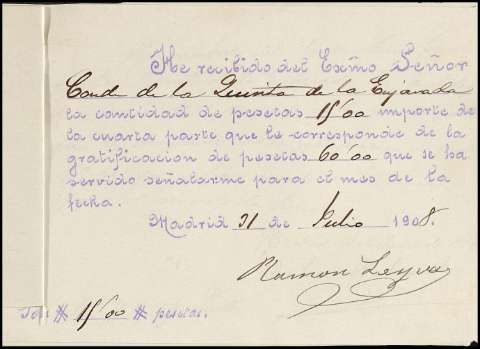 He recibido del Exmo Señor
Conde de la Quinta de la Enjarada
la cantidad de pesetas 15'00 importe de
la cuarta parte que le corresponde de la
gratificacion de pesetas 60'00 que se ha
servido señalarme para el mes de la
fecha.
Madrid 31 de Julio 1908.
Ramon Leyva
Son # 15'00 # pesetas.